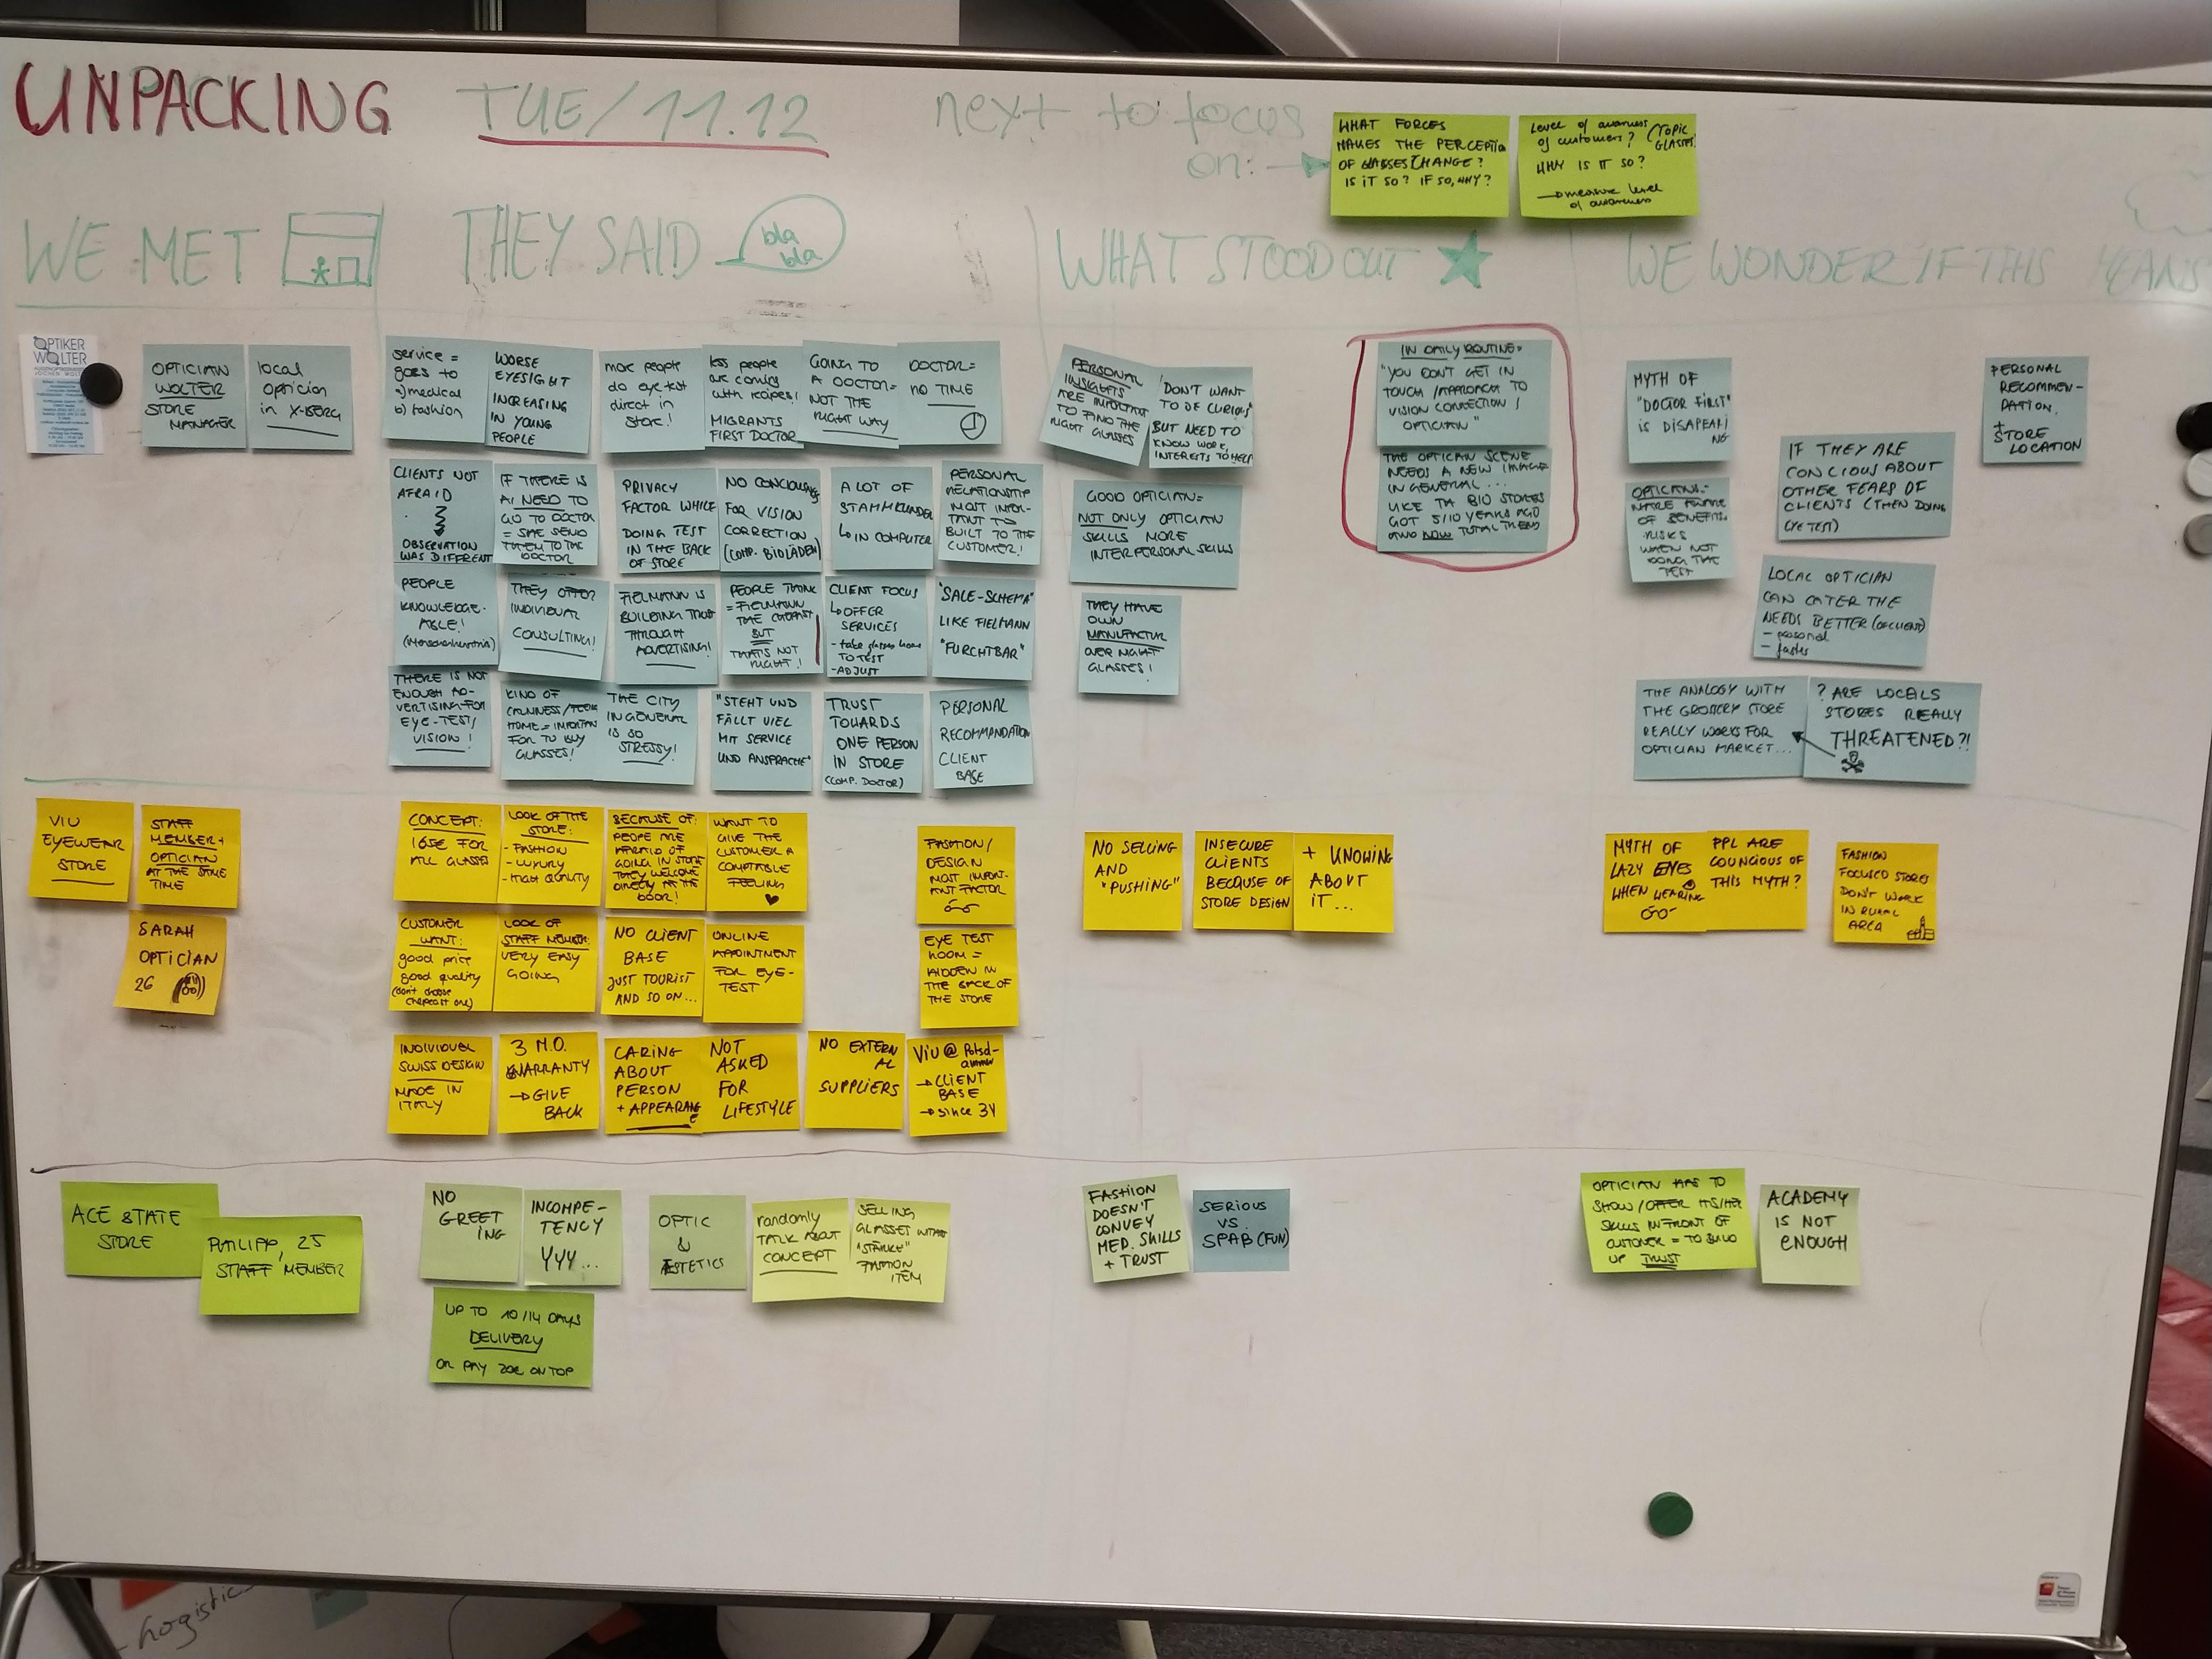 UNPACKING TUE/11.12
next to focus
on:
WHAT FORCES
MAKES THE PERCEPTION
OF GLASSES CHANGE?
IS IT SO? IF SO, WHY?
Level of awarness
of customers? (TOPIC
GLASSES)
WHY IS IT SO?
→ measure level
of awareness
WE MET
THEY SAID
bla
bla
WHAT STOOD OUT
WE WONDER IF THIS MEANS
OPTIKER
WOLTER
OPTICIAN
WOLTER
STORE
MANAGER
local
optician
in X-BERG
service =
goes to
a) medical
b) fashion
WORSE
EYESIGHT
INCREASING
IN YOUNG
PEOPLE
more people
do eye test
direct in
store!
less people
are coming
with recipes!
MIGRANTS
FIRST DOCTOR
GOING TO
A DOCTOR =
NOT THE
RIGHT WAY
DOCTOR =
NO TIME
CLIENTS NOT
AFRAID
OBSERVATION
WAS DIFFERENT
IF THERE IS
A! NEED TO
GO TO DOCTOR
= SHE SEND
THEM TO THE
DOCTOR
PRIVACY
FACTOR WHILE
DOING TEST
IN THE BACK
OF STORE
NO CONCIOUSNESS
FOR VISION
CORRECTION
(COMP. BIOLÄDEN)
A LOT OF
STAMMKUNDEN
↳ IN COMPUTER
PERSONAL
RELATIONSHIP
MOST IMPOR-
TANT TO
BUILT TO THE
CUSTOMER!
PEOPLE
KNOWLEDGE-
ABLE!
(Menschenkenntnis)
THEY OFFER
INDIVIDUAL
CONSULTING!
FIELMANN IS
BUILDING TRUST
THROUGH
ADVERTISING!
PEOPLE THINK
= FIELMANN
THE CHEAPEST
BUT
THAT'S NOT
RIGHT!
CLIENT FOCUS
↳ OFFER
SERVICES
- take glasses home
TO TEST
- ADJUST
"SALE-SCHEMA"
LIKE FIELMANN
"FURCHTBAR"
THERE IS NOT
ENOUGH AD-
VERTISING FOR
EYE-TEST/
VISION!
KIND OF
CALMNESS/FEEL
HOME = IMPORTANT
FOR TO BUY
GLASSES!
THE CITY
IN GENERAL
IS SO
STRESSY!
"STEHT UND
FÄLLT VIEL
MIT SERVICE
UND ANSPRACHE"
TRUST
TOWARDS
ONE PERSON
IN STORE
(COMP. DOCTOR)
PERSONAL
RECOMMANDATION
CLIENT
BASE
PERSONAL
INSIGHTS
ARE IMPORTANT
TO FIND THE
RIGHT GLASSES
"DON'T WANT
TO BE CURIOUS"
BUT NEED TO
KNOW WORK,
INTERESTS TO HELP
GOOD OPTICIAN =
NOT ONLY OPTICIAN
SKILLS MORE
INTERPERSONAL SKILLS
THEY HAVE
OWN
MANUFACTUR
OVER NIGHT
GLASSES!
IN DAILY ROUTINE =
"YOU DON'T GET IN
TOUCH/APPROACH TO
VISION CORRECTION /
OPTICIAN"
THE OPTICIAN SCENE
NEEDS A NEW IMAGE
IN GENERAL ...
LIKE THE BIO STORES
GOT 5/10 YEARS AGO
AND NOW TOTAL TREND
MYTH OF
"DOCTOR FIRST"
IS DISAPEARI
NG
OPTICIANS =
MAKE AWARE
OF BENEFITS,
RISKS
WHEN NOT
DOING THE
TEST
IF THEY ARE
CONCIOUS ABOUT
OTHER FEARS OF
CLIENTS (THEN DOING
EYE TEST)
PERSONAL
RECOMMEN-
DATION
+
STORE
LOCATION
LOCAL OPTICIAN
CAN CATER THE
NEEDS BETTER (OF CLIENT)
- personal
- faster
THE ANALOGY WITH
THE GROCERY STORE
REALLY WORKS FOR
OPTICIAN MARKET...
? ARE LOCALS
STORES REALLY
THREATENED?!
VIU
EYEWEAR
STORE
STAFF
MEMBER +
OPTICIAN
AT THE SAME
TIME
SARAH
OPTICIAN
26
CONCEPT:
165€ FOR
ALL GLASSES
LOOK OF THE
STORE:
- FASHION
- LUXURY
- HIGH QUALITY
BECAUSE OF:
PEOPLE ARE
AFRAID OF
GOING IN STORE
THEY WELCOME
DIRECTLY AT THE
DOOR!
WANT TO
GIVE THE
CUSTOMER A
COMFTABLE
FEELING
FASHION/
DESIGN
MOST IMPOR-
TANT FACTOR
CUSTOMER
WANT:
good price
good quality
(don't choose
cheapest one)
LOOK OF
STAFF MEMBER:
VERY EASY
GOING
NO CLIENT
BASE
JUST TOURIST
AND SO ON...
ONLINE
APPOINTMENT
FOR EYE-
TEST
EYE TEST
ROOM =
HIDDEN IN
THE BACK OF
THE STORE
INDIVIDUEL
SWISS DESIGN
MADE IN
ITALY
3 MO.
WARRANTY
→ GIVE
BACK
CARING
ABOUT
PERSON
+ APPEARANCE
NOT
ASKED
FOR
LIFESTYLE
NO EXTERN
AL
SUPPLIERS
VIU @ Potsd-
ammer
→ CLIENT
BASE
→ since 3Y
NO SELLING
AND
"PUSHING"
INSECURE
CLIENTS
BECAUSE OF
STORE DESIGN
+ KNOWING
ABOUT
IT...
MYTH OF
LAZY EYES
WHEN WEARING
PPL ARE
COUNCIOUS OF
THIS MYTH?
FASHION
FOCUSED STORES
DON'T WORK
IN RURAL
AREA
ACE & TATE
STORE
PHILIPP, 25
STAFF MEMBER
NO
GREET
ING
INCOMPE-
TENCY
YYY...
OPTIC
&
ESTETICS
randomly
TALK ABOUT
CONCEPT
SELLING
GLASSES WITHOUT
"STÄRKE"
FASHION
ITEM
UP TO 10/14 DAYS
DELIVERY
OR PAY 20€ ON TOP
FASHION
DOESN'T
CONVEY
MED. SKILLS
+ TRUST
SERIOUS
VS.
SPAß (FUN)
OPTICIAN HAS TO
SHOW/OFFER ITS/HER
SKILLS IN FRONT OF
CUSTOMER = TO BUILD
UP TRUST
ACADEMY
IS NOT
ENOUGH
Logistic